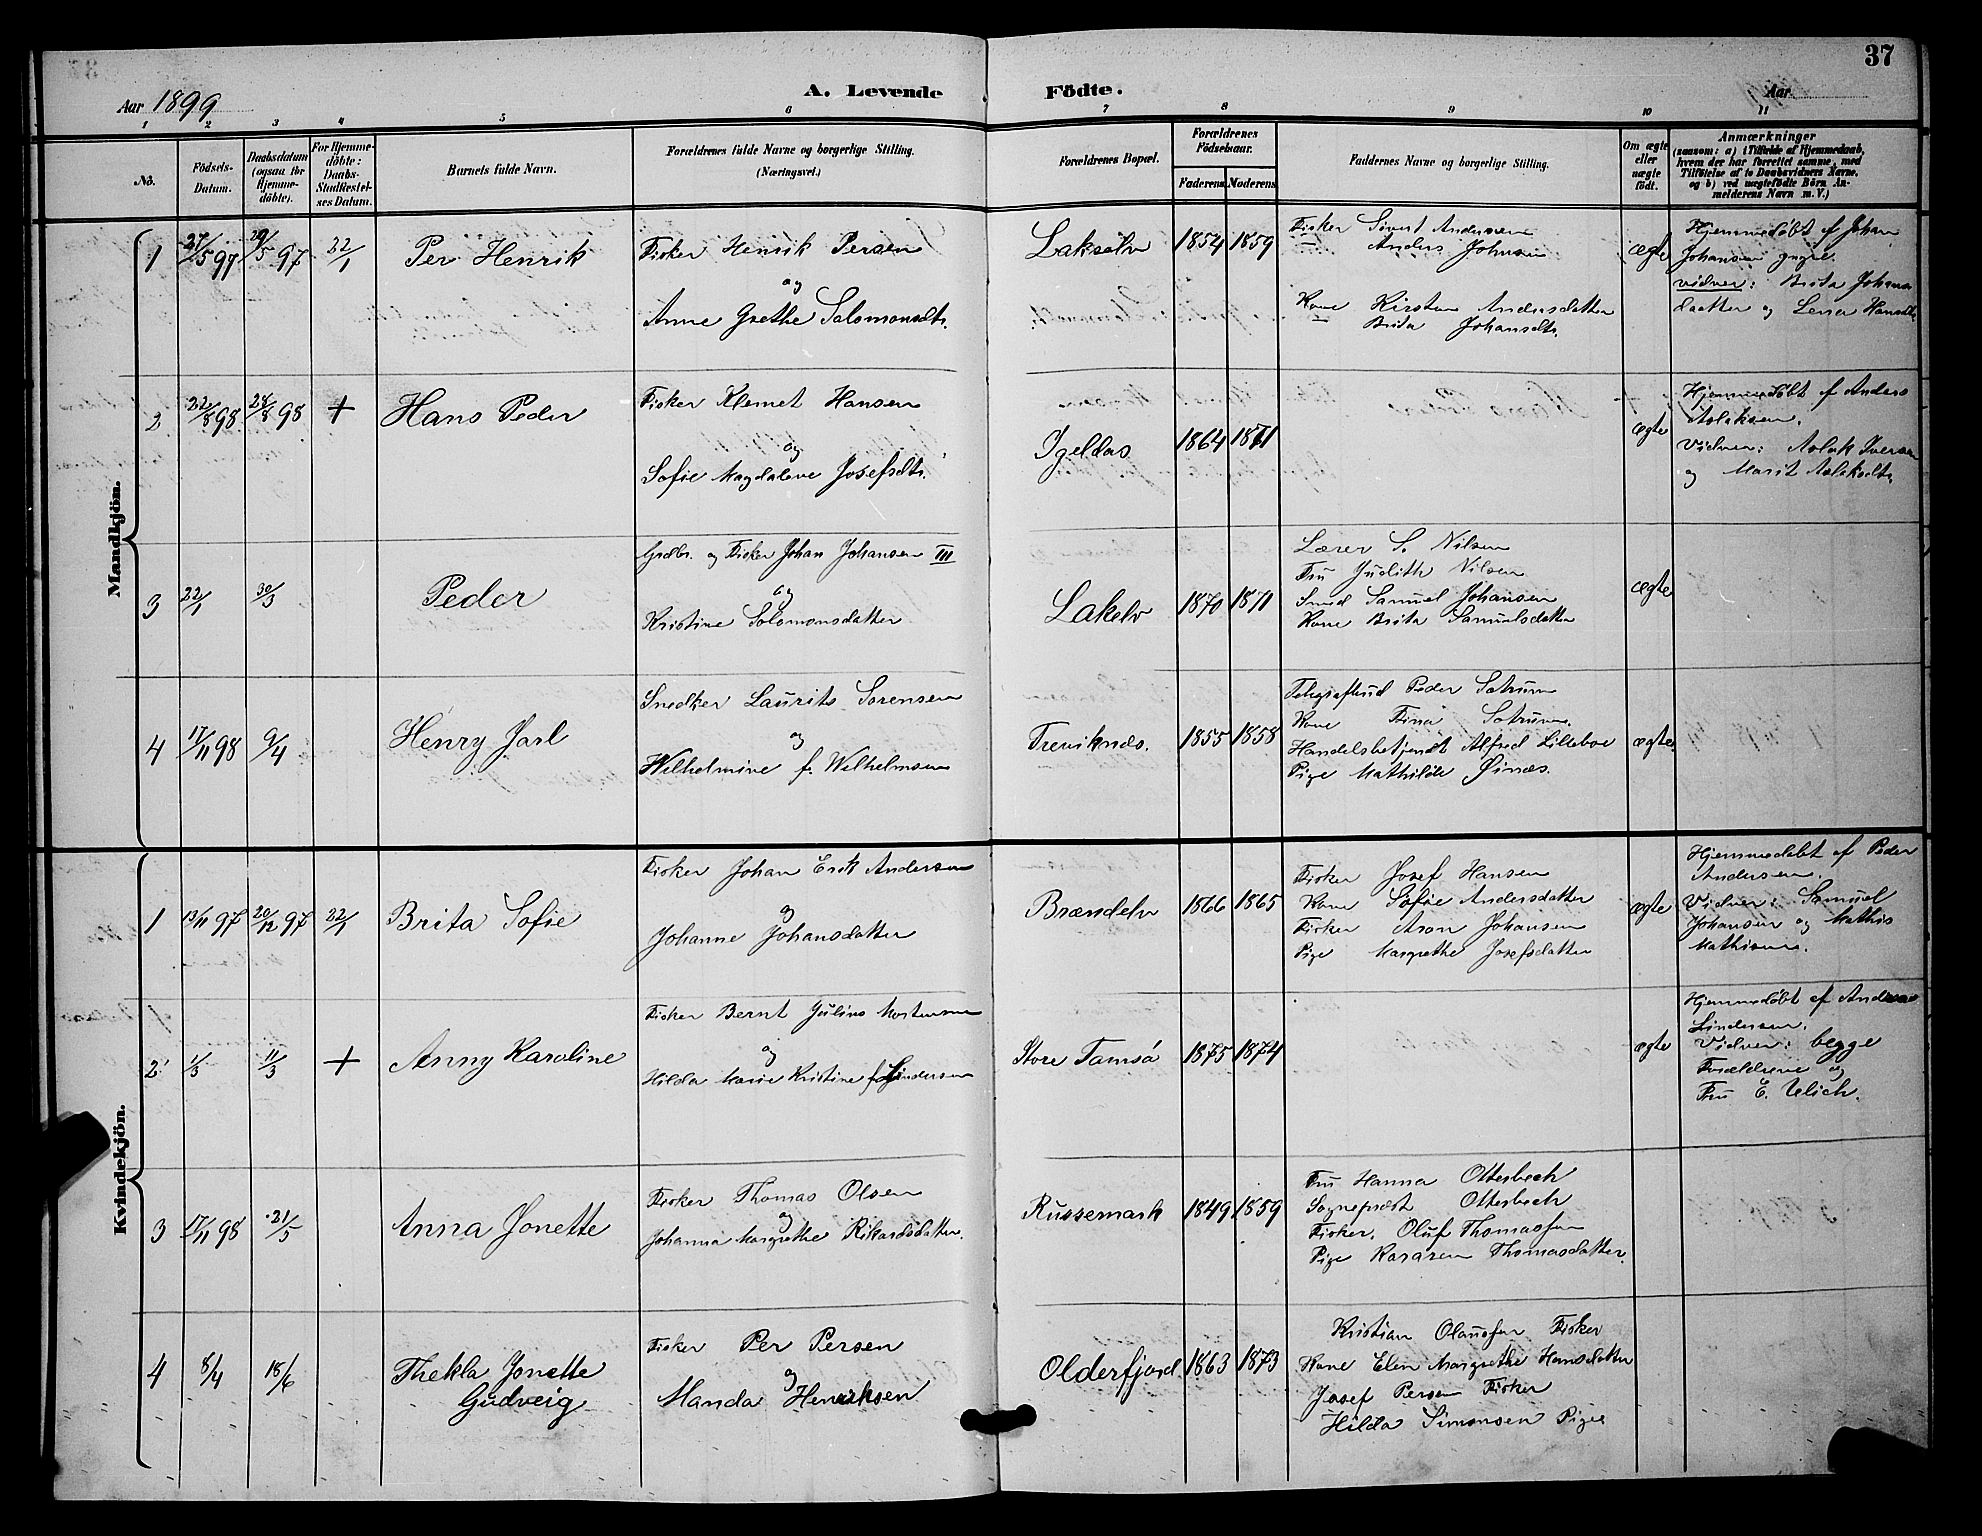 37
Aar 1899
A. Levende Födte.
Aar
1 2 3 4 5 6 7 8 9 10 11
No.
Födsels-
Datum.
Daabsdatum
(ogsaa for
Hjemme-
döbte).
For Hjemme-
döbte:
Daabs-
Stadfæstel-
ses Datum.
Barnets fulde Navn.
Forældrenes fulde Navne og borgerlige Stilling.
(Næringsvei.)
Forældrenes Bopæl.
Forældrenes
Födselsaar.
Faderens
Moderens
Faddernes Navne og borgerlige Stilling.
Om ægte
eller
uægte
födt.
Anmærkninger
(saasom: a) i Tilfælde af Hjemmedaab,
hvem der har forrettet samme, med
Tilföielse af to Daabsvidners Navne,
og b) ved uægtefödte Börn An-
melderens Navn m. V.)
Mandkjön.
1
27/5 97
29/5 97
22/1
Per Henrik
Fisker Henrik Persen
og
Anne Grethe Salomonsdtr.
Lakselv
1854
1859
Fisker Sivert Andersen
Anders Johnsen
Kone Kirsten Andersdatter
Brita Johansdtr.
ægte
Hjemmedöbt af Johan
Johansen
vidner: Brita Johans
datter og Lena Hansdtr.
2
22/8 98
28/8 98
+
Hans Peder
Fisker Klemet Hansen
og
Sofie Magdalene Josefsdtr.
Igeldas
1864
1871
ægte
Hjemmedöbt af Anders
Aslaksen.
Vidner: Aslak Iversen
og Marit Aslaksdtr.
3
22/1
30/3
Peder
Grdbr. og Fisker Johan Johansen III
og
Kristine Salomonsdatter
Lakelv
1870
1871
Lærer S. Nilsen
Fru Judith Nilsen
Smed Samuel Johansen
Kone Brita Samuelsdatter
ægte
4
17/11 98
9/4
Henry Jarl
Snedker Laurits Sorensen
og
Wilhelmine f. Wilhelmsen
Treviknds.
1855
1858
Peder Sotrum
Kone Fina Sotrum.
Handelsbetjendt Alfred Lilleboe
Pige Mathilde Øinæs.
ægte
Kvindekjön.
1
13/11 97
20/12 97
22/1
Brita Sofie
Fisker Johan Erik Andersen
og
Johanne Johansdatter
Brændelv
1866
1865
Fisker Josef Hansen
Kone Sofie Andersdatter
Fisker Aron Johansen
Pige Margrethe Josefsdatter
ægte
Hjemmedöbt af Peder
Andersen.
Vidner: Samuel
Johansen og Mathis
Mathisen.
2
1/3
11/3
+
Anny Karoline
Fisker Bernt Julius Mortensen
og
Hilda Marie Kristine f. Lindersen
Store Tamsö
1875
1874
ægte
Hjemmedöbt af Andreas
Lindersen.
Vidner: begge
Forældrene og
Fru E. Ulich.
3
17/11 98
21/5
Anna Jonette
Fisker Thomas Olsen
og
Johanna Margrethe Rikardsdatter.
Russemark
1849
1859
Fru Hanna Otterbech
Sognepræst Otterbech
Fisker. Oluf Thomassen
Pige Karasen Thomasdatter.
4
8/4
18/6
Thekla Jonette
Gudveig
Fisker Per Persen
og
Manda Henriksen
Olderfjord
1863
1873
Kristian Olaussen Fisker
Kone Elen Margrethe Hansdatter
Josef Persen Fisker
Hilda Simonsen Pige